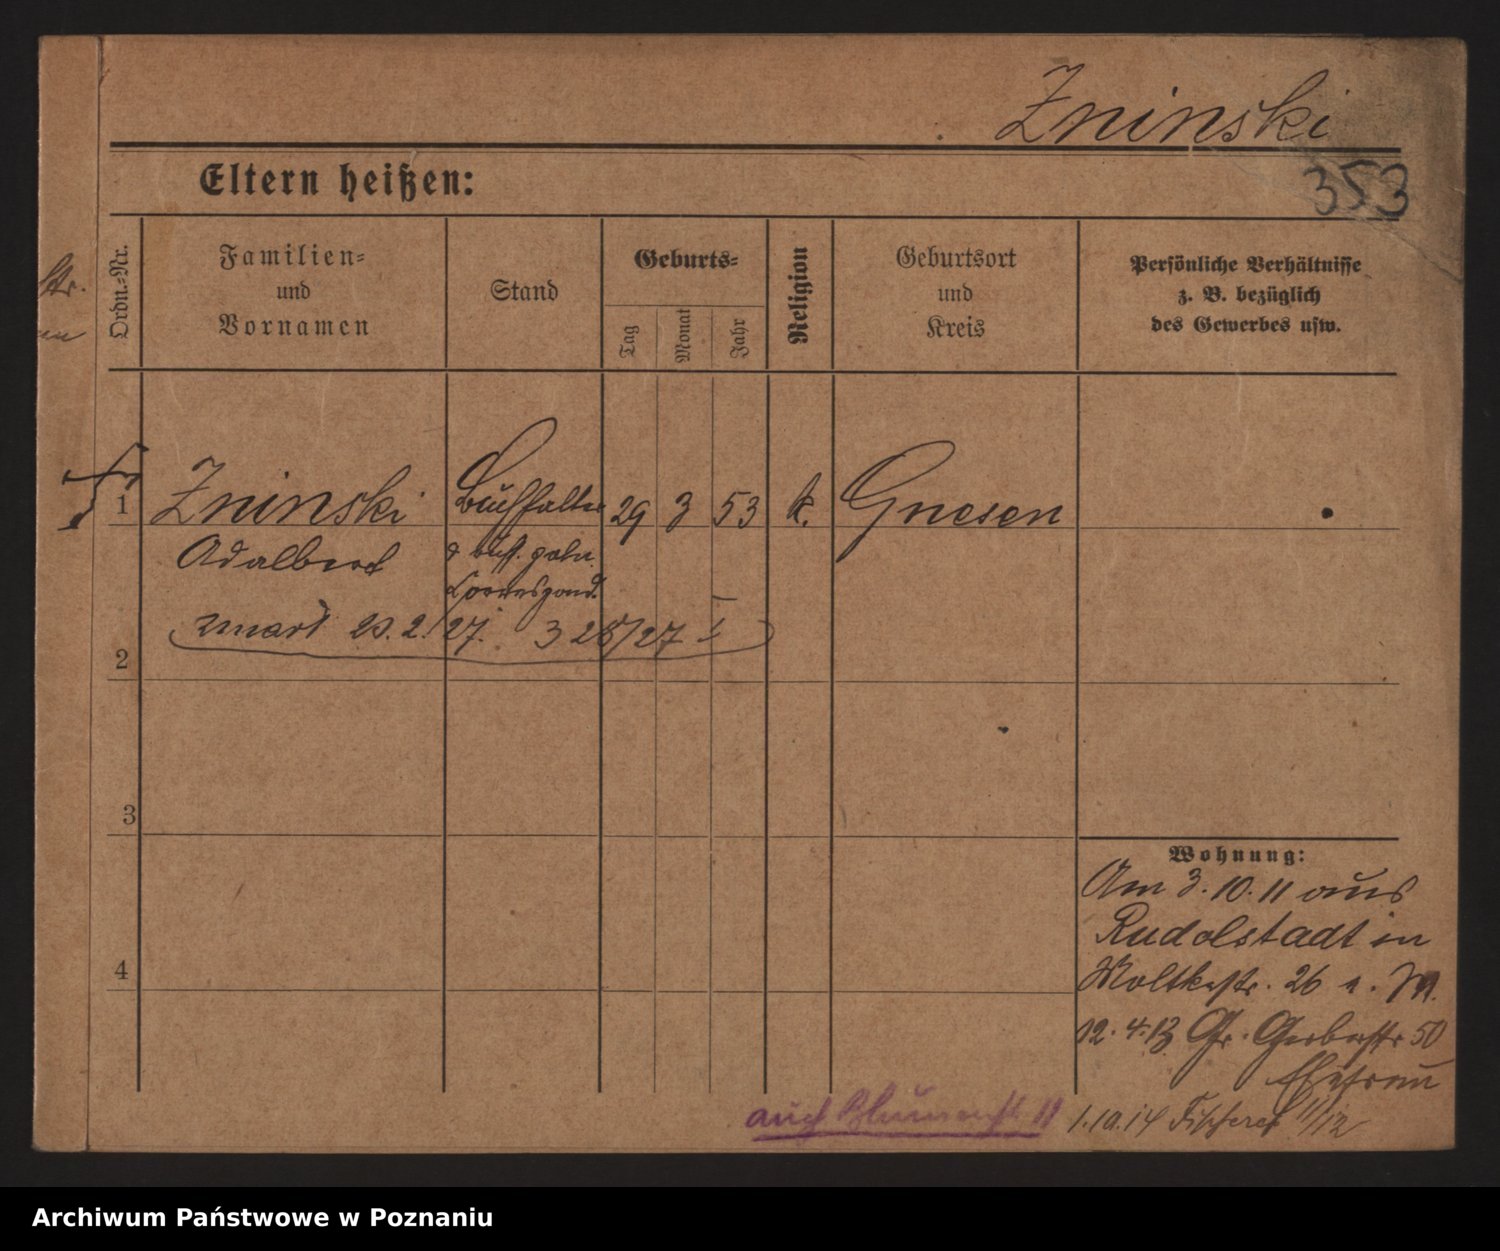 Zninski
353
Eltern heißen:
Ordn.-Nr.
Familien-
und
Vornamen
Stand
Geburts-
Tag
Monat
Jahr
Religion
Geburtsort
und
Kreis
Persönliche Verhältnisse
z. B. bezüglich
des Gewerbes usw.
str.
1 Zninski Buchhalter 29 3 53 k. Gnesen
Adalbert
Correspond.
zmarł 23.2.27. 328/27 I
2
3
4
Wohnung:
Am 3.10.11 aus
Rudolstadt in
Moltkestr. 26 a. M.
12.4.13 Gr. Gerberstr 50
Ehefrau
auch Blumenstr. 11
1.10.14 Fischerei 11/12
Archiwum Państwowe w Poznaniu